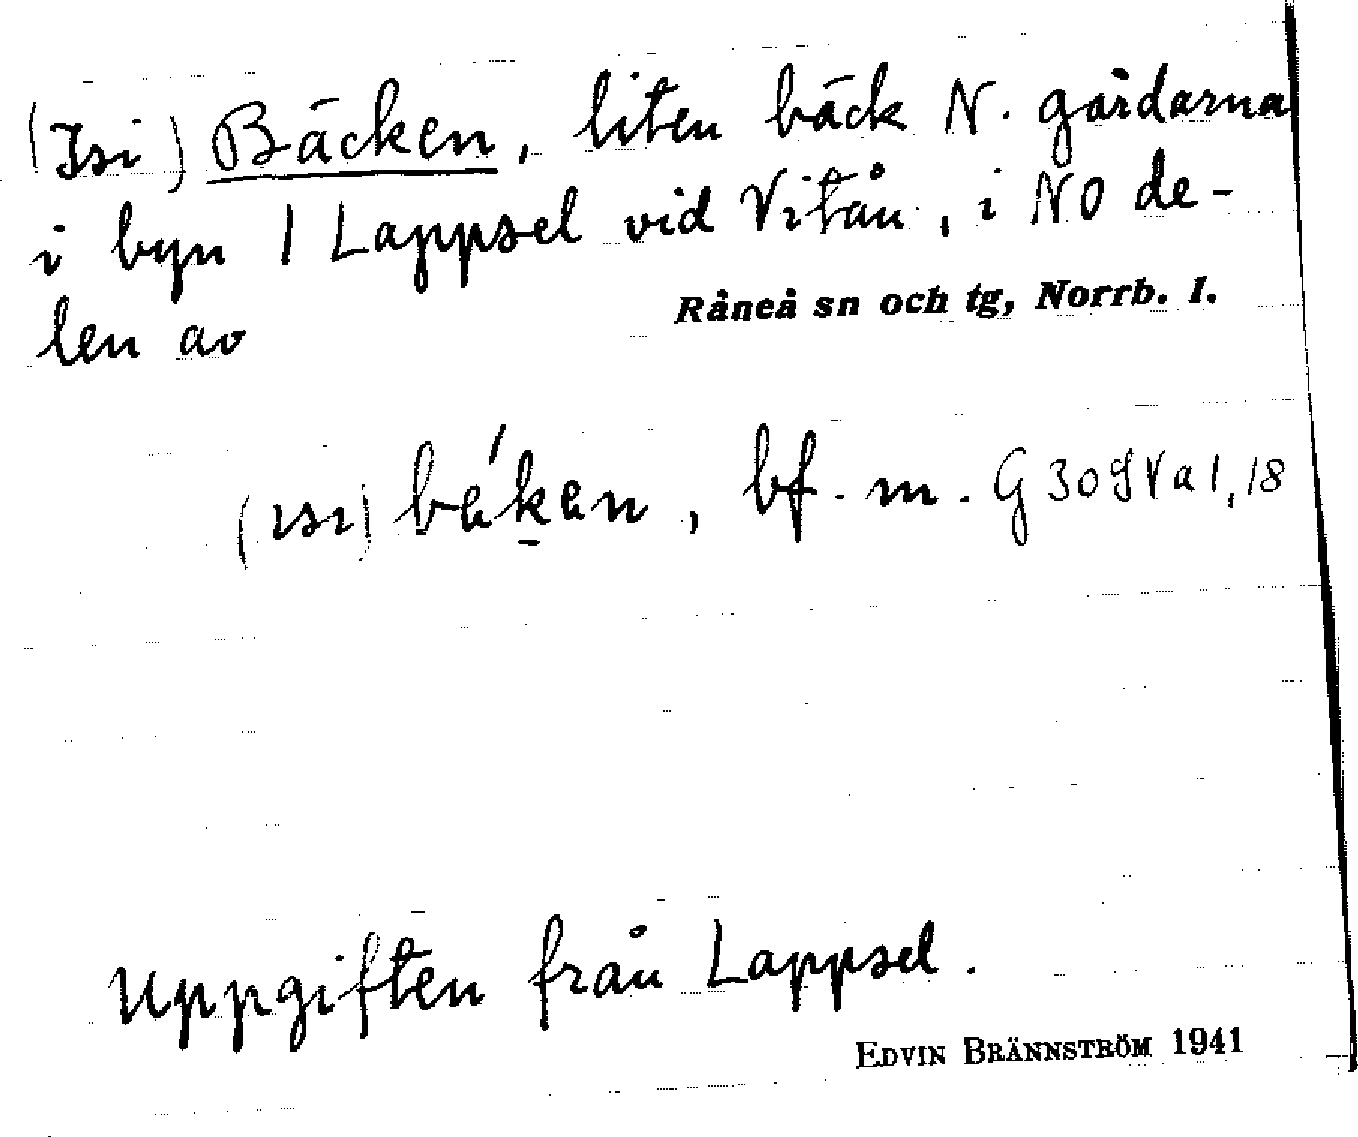 (Isi) Bäcken, liten bäck N. gårdarna
i byn 1 Lappsel vid Vitån, i NO de-
len av
Råneå sn och tg, Norrb. l.
bf. m. G 30 9 V a 1, 18
Uppgiften från Lappsel.
EDVIN BRÄNNSTRÖM 1941